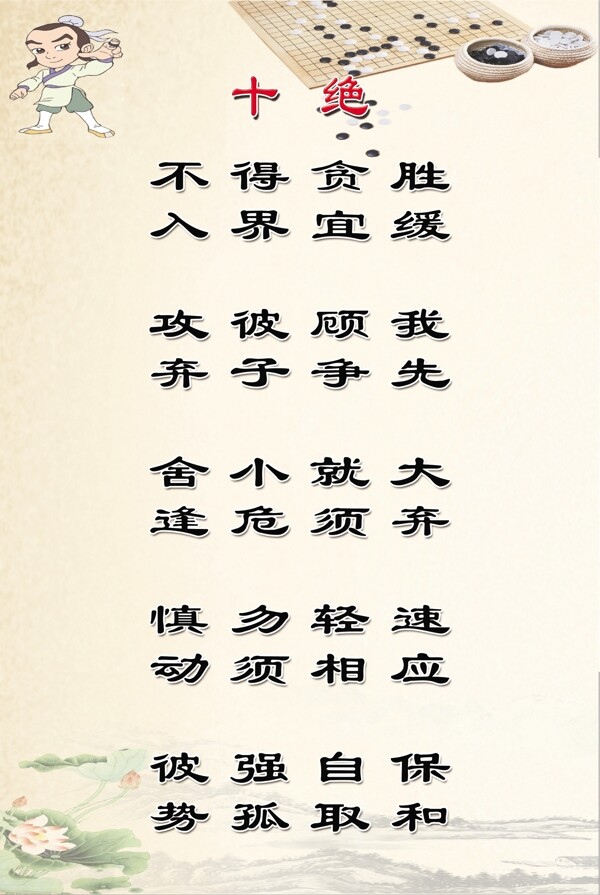 十绝
不得贪胜
入界宜缓
攻彼顾我
弃子争先
舍小就大
逢危须弃
慎勿轻速
动须相应
彼强自保
势孤取和